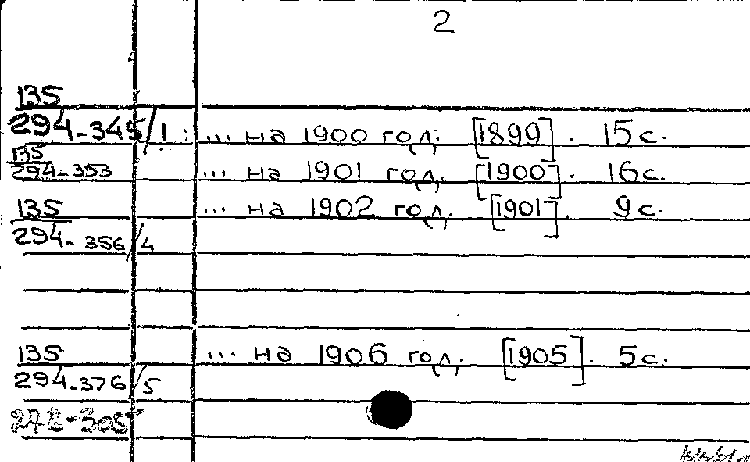 2
135
294-345/1 ... на 1900 год. [1899]. 15 с.
135
294-353 ... на 1901 год. [1900]. 16 с.
135 ... на 1902 год. [1901]. 9 с.
294-356/4
135 ... на 1906 год. [1905]. 5 с.
294-376/5